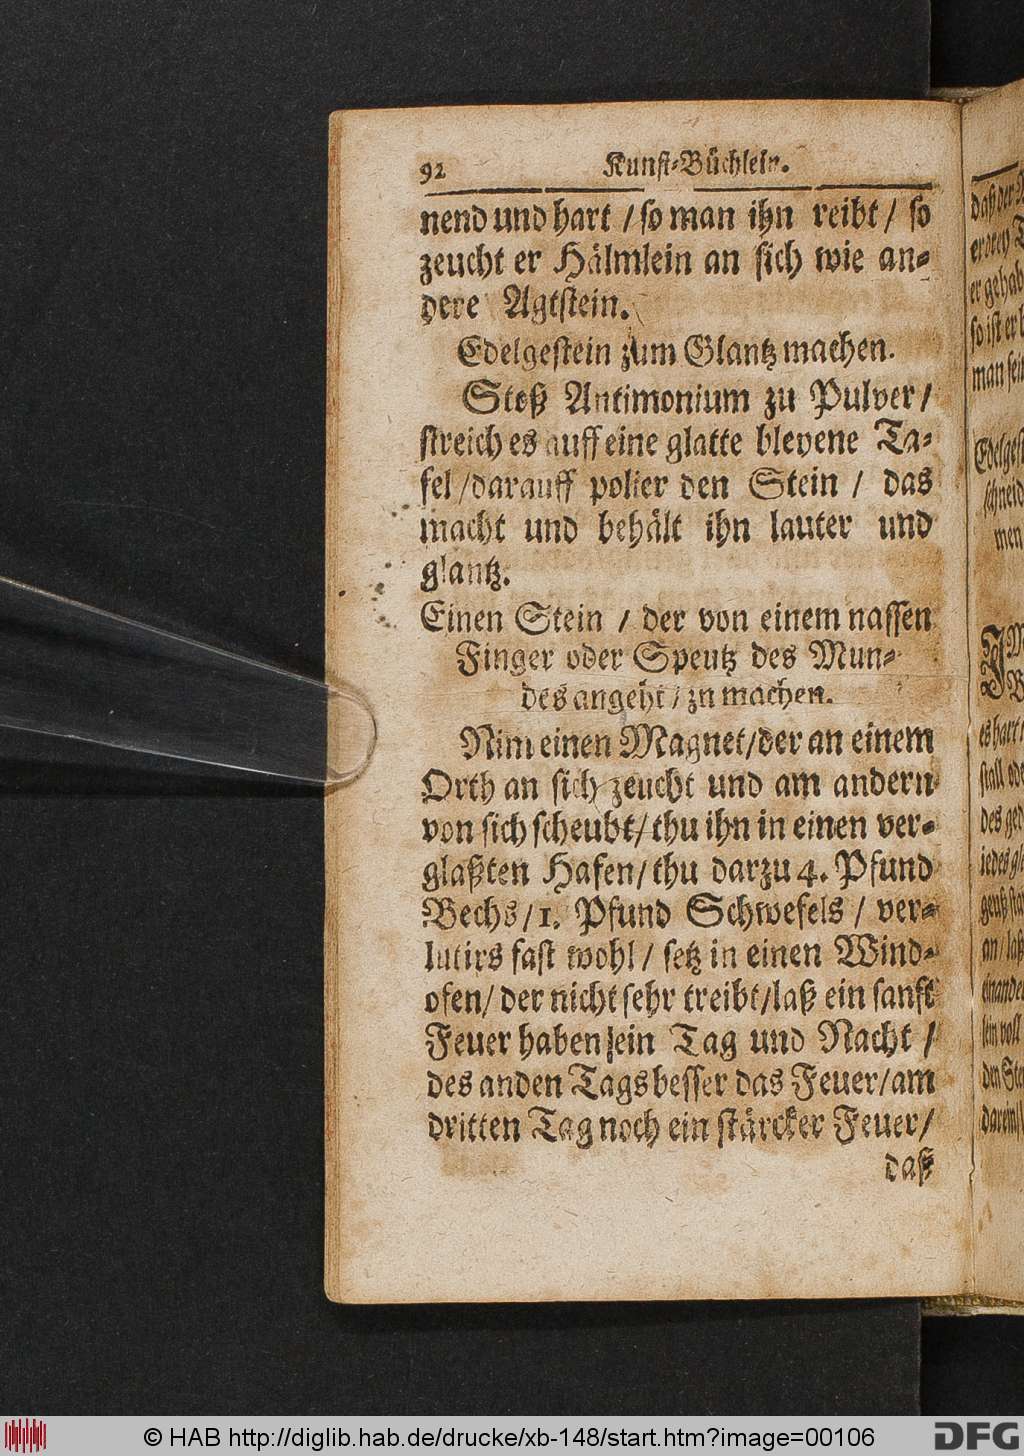 92 Kunst-Büchlein.
nend und hart / so man ihn reibt / so
zeucht er Hälmlein an sich wie an-
dere Agtstein.
Edelgestein zum Glantz machen.
Stoß Antimonium zu Pulver /
streich es auff eine glatte bleyene Ta-
fel / darauff polier den Stein / das
macht und behält ihn lauter und
glantz.
Einen Stein / der von einem nassen
Finger oder Speutz des Mun-
des angeht / zu machen.
Nim einen Magnet / der an einem
Orth an sich zeucht und am andern
von sich scheubt / thu ihn in einen ver-
glaßten Hafen / thu darzu 4. Pfund
Bechs / 1. Pfund Schwefels / ver-
lutirs fast wohl / setz in einen Wind-
ofen / der nicht sehr treibt / laß ein sanft
Feuer haben ein Tag und Nacht /
des anden Tags besser das Feuer / am
dritten Tag noch ein stärcker Feuer /
daß
daß der
er gehab
so ist er
man sein
Edelgest
schneid
men
es hart /
stall ode
des ged
iedes gle
an / laß
einander
lein voll
den Ste
© HAB http://diglib.hab.de/drucke/xb-148/start.htm?image=00106
DFG